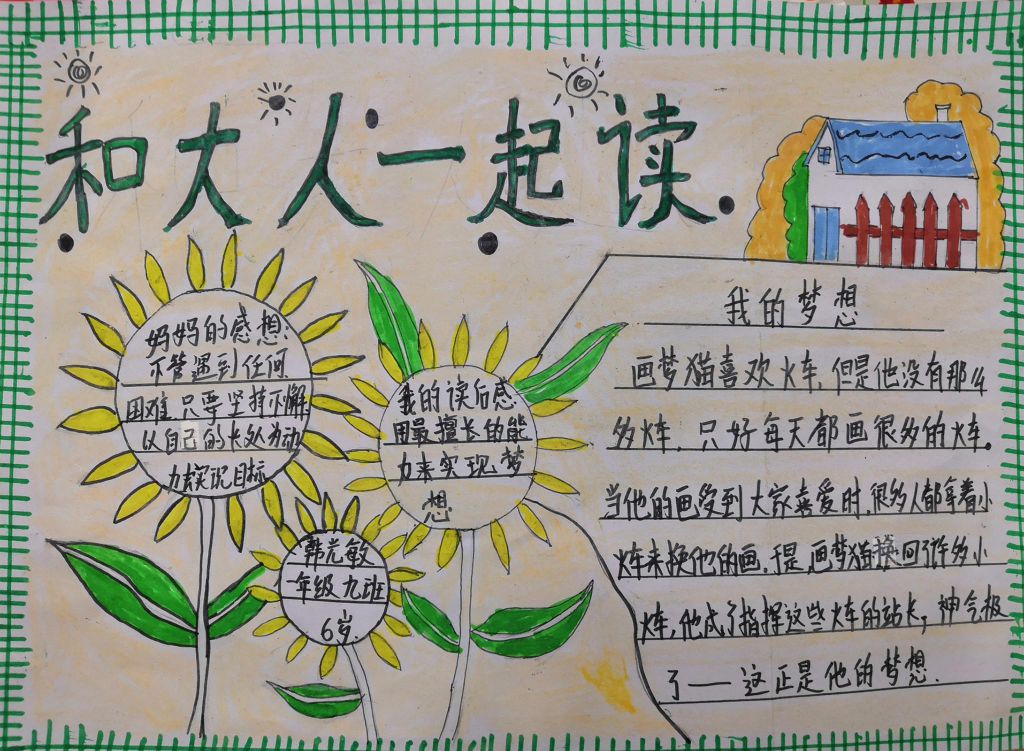 和大人一起读
我的梦想
画梦猫喜欢火车，但是他没有那么
多火车，只好每天都画很多的火车。
当他的画受到大家喜爱时，很多人都拿着小
火车来换他的画，于是，画梦猫换回了许多小
火车，他成了指挥这些火车的站长，神气极
了——这正是他的梦想.
妈妈的感想:
不管遇到任何
困难，只要坚持不懈
以自己的长处为动
力去实现目标
我的读后感
用最擅长的能
力来实现梦
想
韩尤敏
一年级九班
6岁.